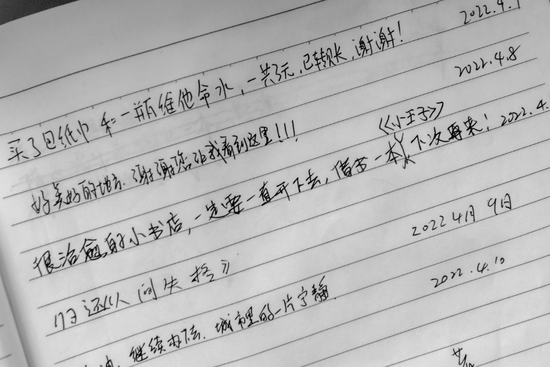 2022.4.1
买了包纸巾和一瓶维他命水,一共7元,已转账,谢谢!
2022.4.8
好美好的地方.谢谢您让我看到这里!!!
《小王子》
很治愈的小书店,一定要一直开下去,借去一本,下次再来!2022.4.
2022 4月 9日
17日还《人间失格》
2022.4.10
继续办下去.城市里的一片宁静.